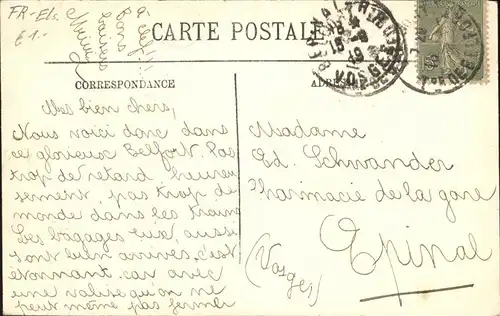 FR-Els.
61.-
CARTE POSTALE
CORRESPONDANCE
ADRES
VOSGES
Mes bien chers,
Nous voici donc dans
ce glorieux Belfort. Pas
trop de retard heureu
sement, pas trop de
monde dans les trains
Les bagages eux, aussi
sont bien arrivés, c'est
étonnant car avec
une valise qu'on ne
peut même pas fermer
Madame
Ed. Schwander
Pharmacie de la gare
Epinal
(Vosges)